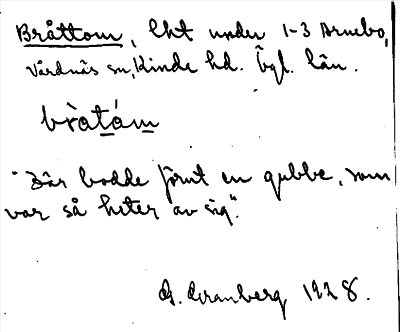 Bråttom, lht under 1-3 Arnebo,
Vårdnäs sn, Kinda hd. Ögl. län.
bràtám
"Där bodde förut en gubbe, som
var så heter av sig".
G. Granberg 1928.